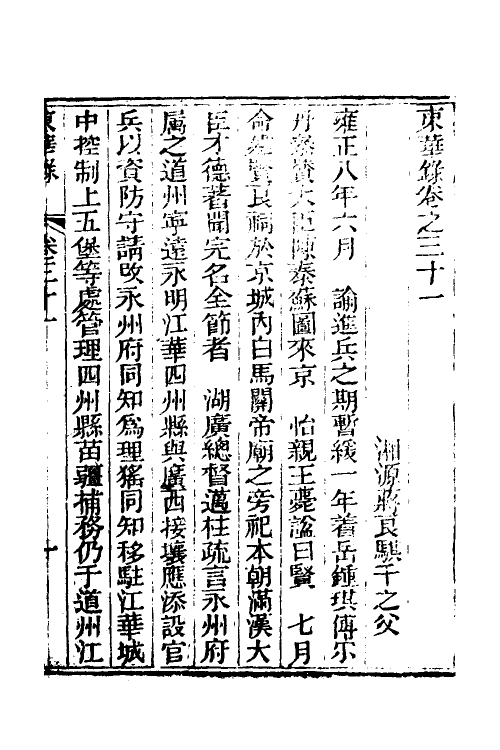 東華錄卷之三十一
湘源蔣良騏千之父
雍正八年六月　諭進兵之期暫緩一年着岳鍾琪傅尒
丹參贊大臣陳泰蘇圖來京　怡親王薨諡曰賢　七月
命建賢良祠於京城內白馬關帝廟之旁祀本朝滿漢大
臣才德著聞完名全節者　湖廣總督邁柱疏言永州府
屬之道州寧遠永明江華四州縣與廣西接壤應添設官
兵以資防守請改永州府同知爲理猺同知移駐江華城
中控制上五堡等處管理四州縣苗疆捕務仍于道州江
東華錄
卷三十一
一